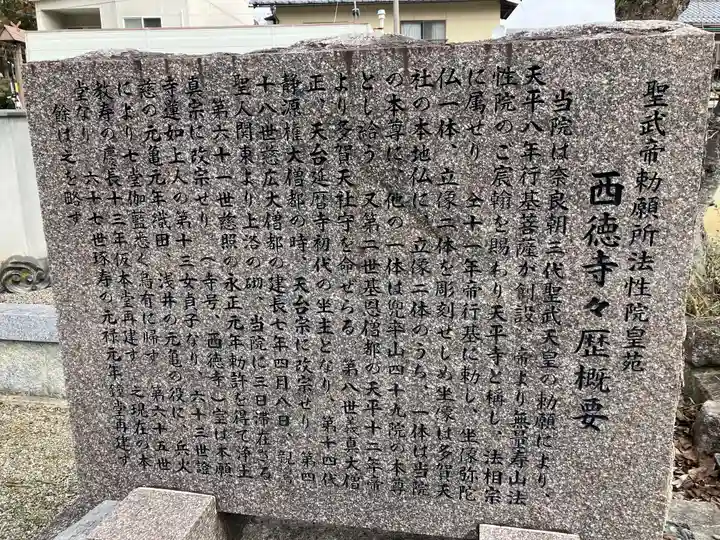 聖武帝勅願所法性院皇苑
西徳寺々歴概要
当院は奈良朝三代聖武天皇の勅願により、
天平八年行基菩薩が創設、帝より無量寿山法
性院のご宸翰を賜わり天平寺と称し、法相宗
に属せり 仝十一年帝行基に勅し、坐像弥陀
仏一体、立像二体を彫刻せしめ坐像は多賀天
社の本地仏に、立像二体のうち、一体は当院
の本尊に、他の一体は兜率山四十九院の本尊
とし給う 又第二世基恩僧都の天平十二年帝
より多賀天社守を命ぜらる 第八世慈真大僧
正、天台延暦寺初代の坐主となり、第十四代
静源権大僧都の時、天台宗に改宗せり、第四
十八世慈広大僧都の建長七年四月八日、親鸞
聖人関東より上洛の砌、当院に三日滞在さる
第六十一世慈照の永正元年勅許を得て浄土
真宗に改宗せり (寺号、西徳寺)室は本願
寺蓮如上人の第十三女貞子なり、六十三世證
慈の元亀元年織田、浅井の元亀の役に、兵火
により七堂伽藍悉く烏有に帰す 第六十五世
教寿の慶長十三年仮本堂再建す 之現在の本
堂なり 六十七世琢寿の元禄元年鐘堂再建す
餘は之を略す